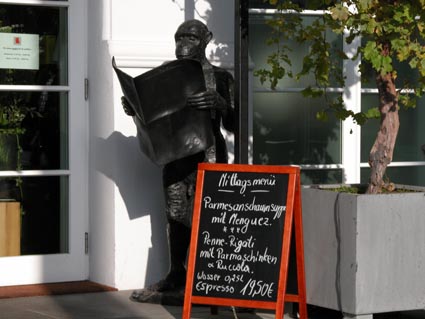 Mittagsmenü
Parmesanschaumsuppe
mit Merguez.
***
Penne-Rigati
mit Parmaschinken
& Rucola.
Wasser 0,25l
Espresso 19,50€